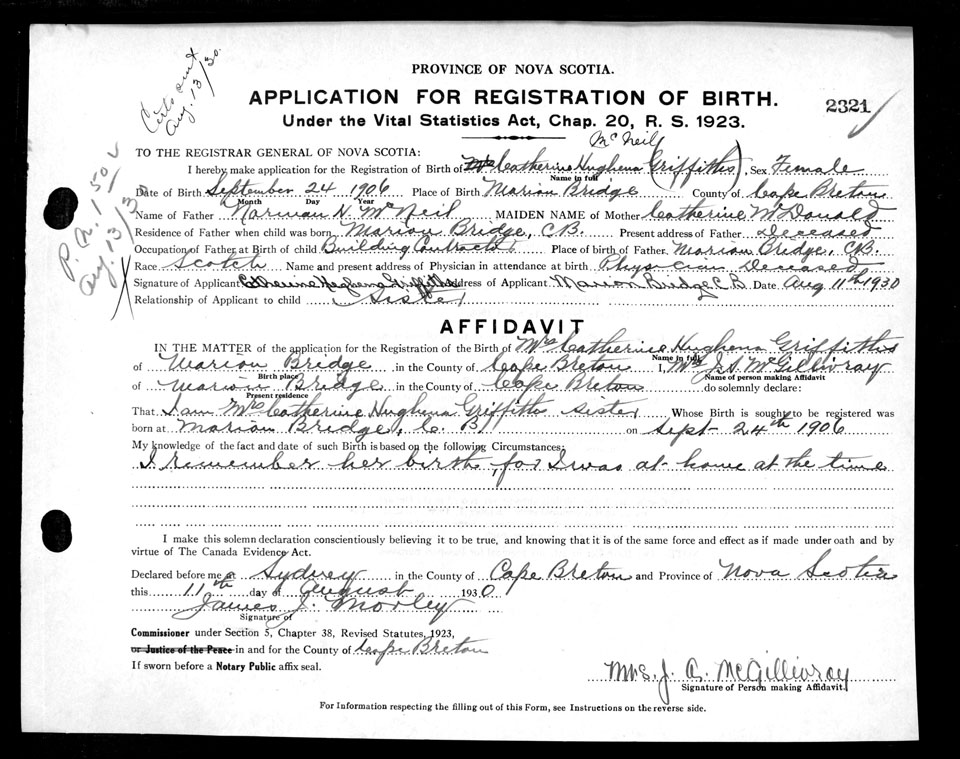 Certs sent
Aug. 13/30.
P.N. 1.50
Aug. 13/3
PROVINCE OF NOVA SCOTIA.
APPLICATION FOR REGISTRATION OF BIRTH.
2321
Under the Vital Statistics Act, Chap. 20, R. S. 1923.
TO THE REGISTRAR GENERAL OF NOVA SCOTIA:
McNeil
I hereby make application for the Registration of Birth of Mrs Catherine Hughena (Griffiths) Sex Female
Name in full
Date of Birth September 24 1906 Place of Birth Marion Bridge County of Cape Breton
Month Day Year
Name of Father Norman N. McNeil MAIDEN NAME of Mother Catherine McDonald
Residence of Father when child was born Marion Bridge, C.B. Present address of Father Deceased
Occupation of Father at Birth of child Building Contractor Place of birth of Father Marion Bridge, C.B.
Race Scotch Name and present address of Physician in attendance at birth Physician Deceased
Signature of Applicant Catherine Hughena Griffiths Address of Applicant Marion Bridge C.B. Date Aug 11th 1930
Relationship of Applicant to child Sister
AFFIDAVIT
IN THE MATTER of the application for the Registration of the Birth of Mrs Catherine Hughena Griffiths
Name in full
of Marion Bridge in the County of Cape Breton I, Mrs J. A. McGillivray
Birth place Name of person making Affidavit
of Marion Bridge in the County of Cape Breton do solemnly declare:
Present residence
That I am Mrs Catherine Hughena Griffiths sister Whose Birth is sought to be registered was
born at Marion Bridge, C. B. on Sept- 24th 1906
My knowledge of the fact and date of such Birth is based on the following Circumstances:
I remember her birth, for I was at home at the time
I make this solemn declaration conscientiously believing it to be true, and knowing that it is of the same force and effect as if made under oath and by
virtue of The Canada Evidence Act.
Declared before me at Sydney in the County of Cape Breton and Province of Nova Scotia
this 11th day of August 1930
James J. Morley
Signature of
Commissioner under Section 5, Chapter 38, Revised Statutes, 1923,
or Justice of the Peace in and for the County of Cape Breton
If sworn before a Notary Public affix seal.
Mrs. J. A. McGillivray
Signature of Person making Affidavit.
For Information respecting the filling out of this Form, see Instructions on the reverse side.